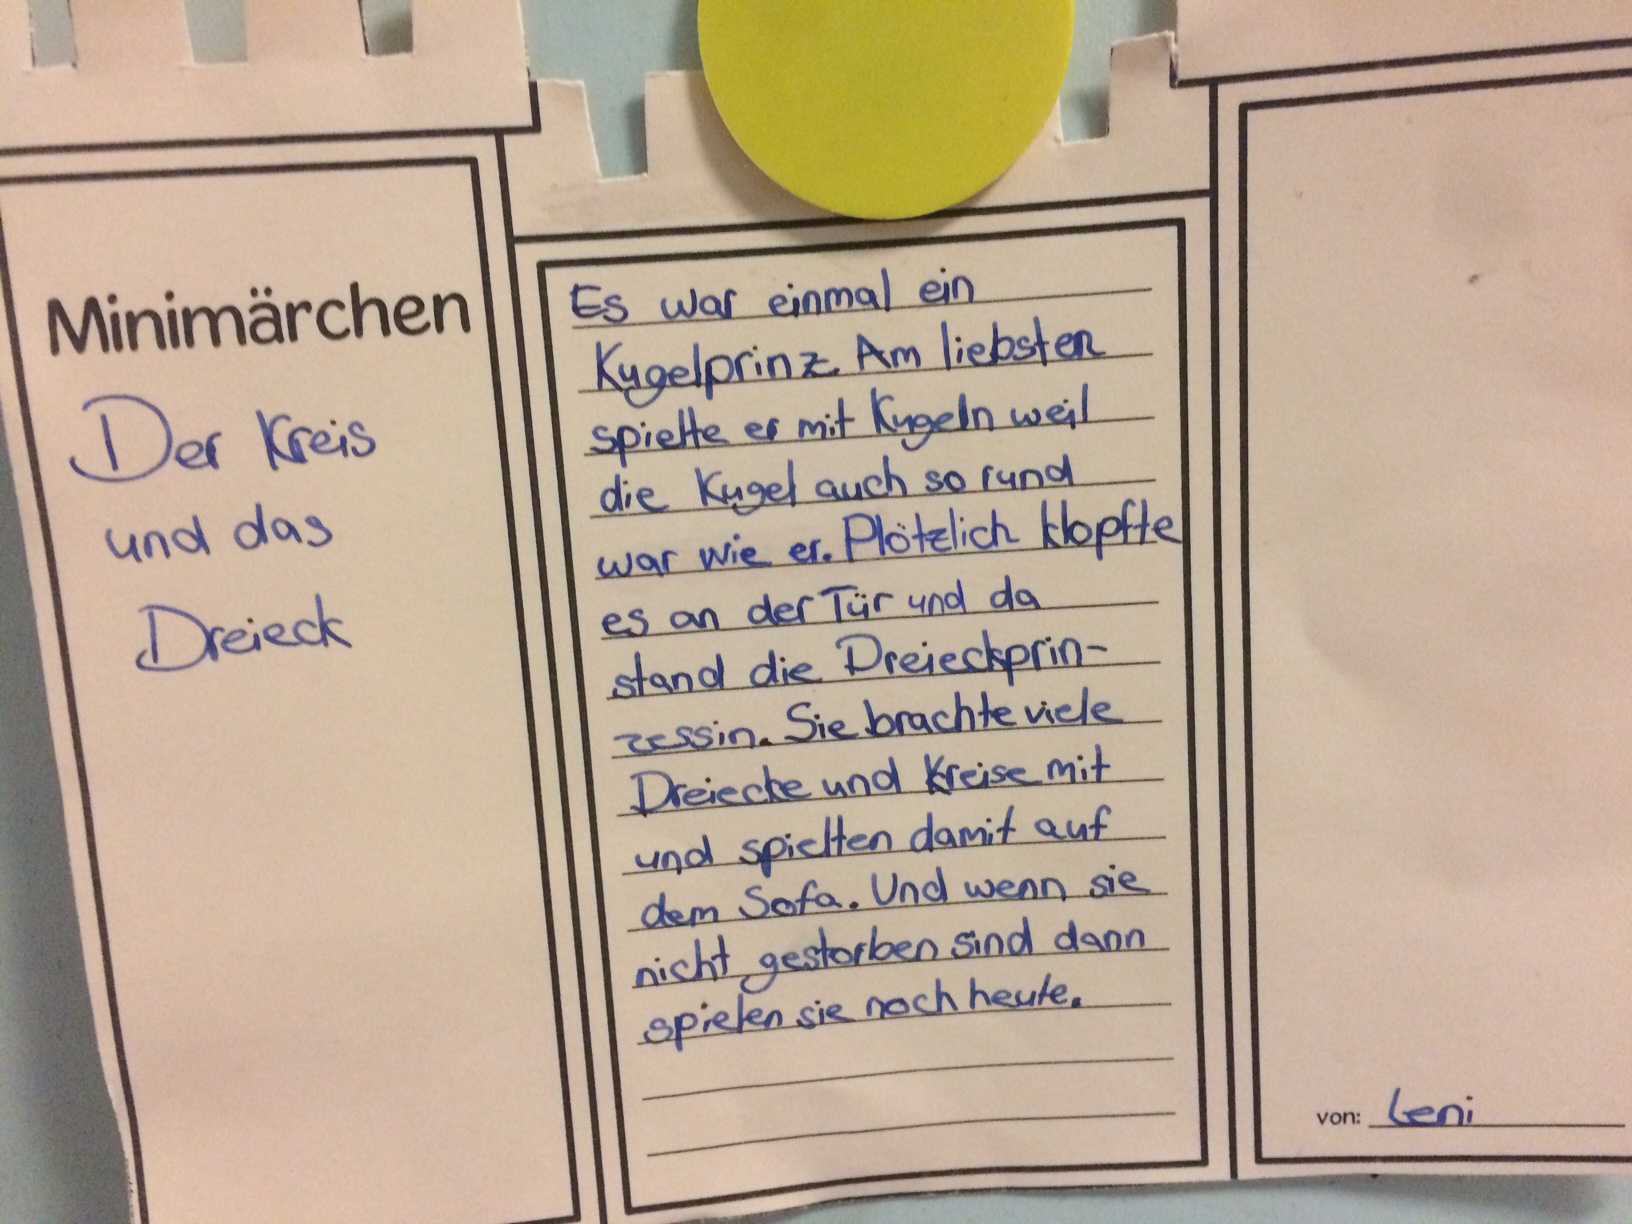 Minimärchen
Der Kreis
und das
Dreieck
Es war einmal ein
Kugelprinz. Am liebsten
spielte er mit Kugeln weil
die Kugel auch so rund
war wie er. Plötzlich klopfte
es an der Tür und da
stand die Dreieckprin-
zessin. Sie brachte viele
Dreiecke und Kreise mit
und spielten damit auf
dem Sofa. Und wenn sie
nicht gestorben sind dann
spielen sie noch heute.
von: Leni